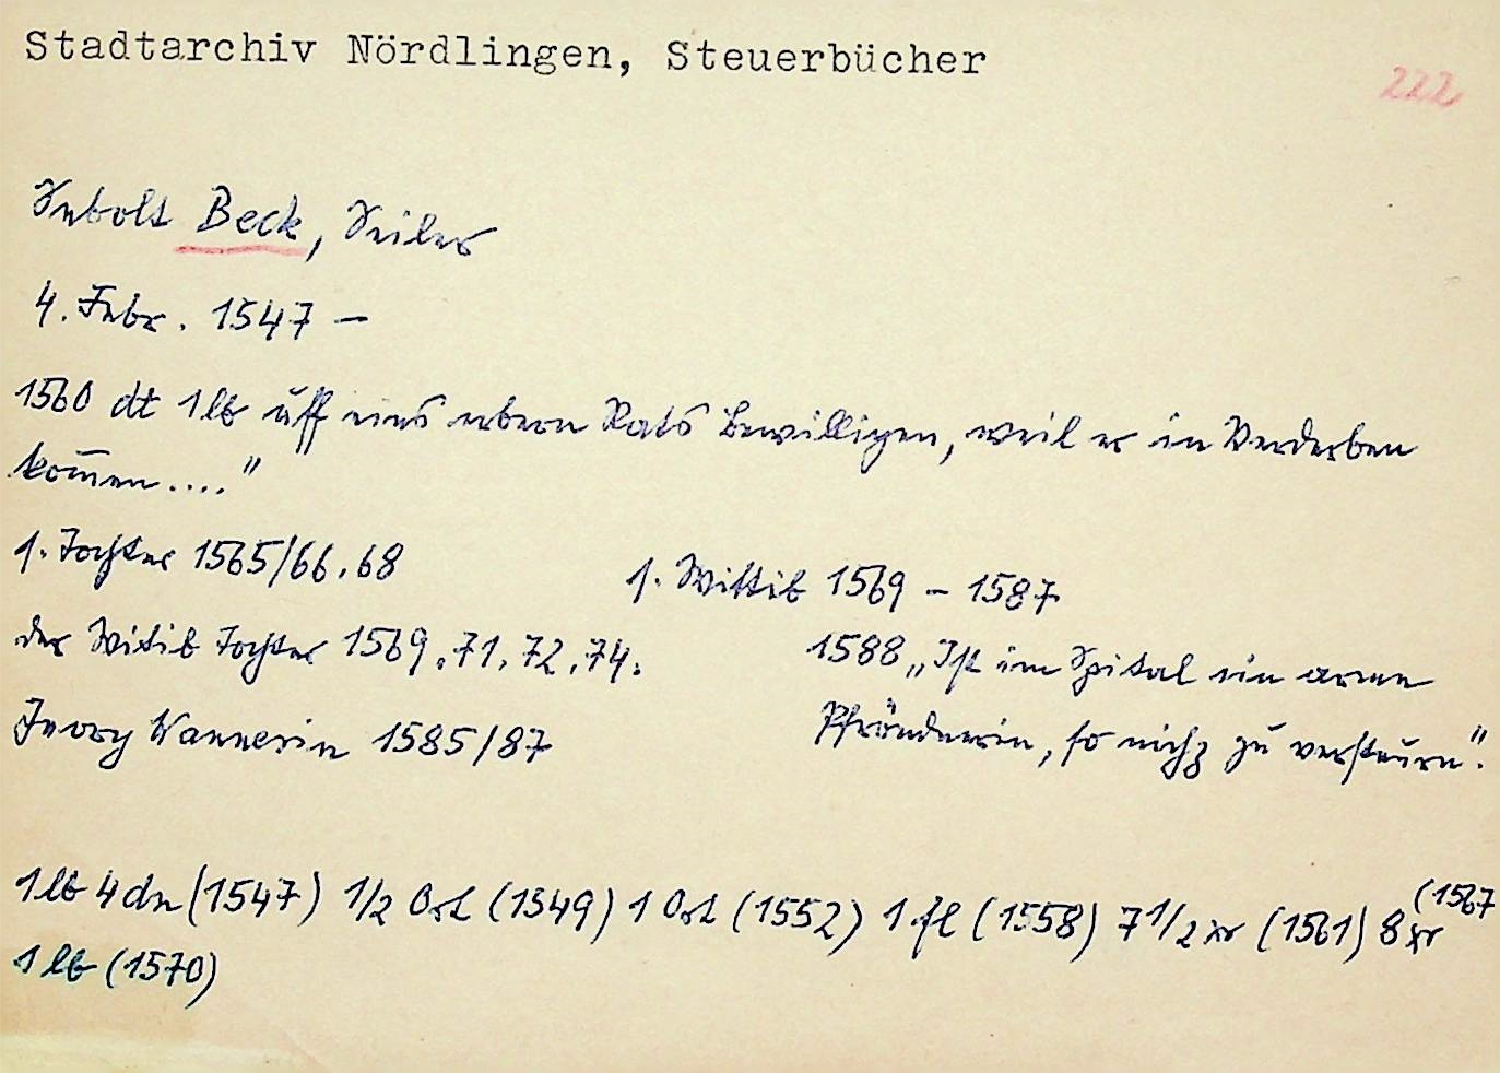 Stadtarchiv Nördlingen, Steuerbücher
222
Sebolt Beck, Seiler
4. Febr. 1547 –
1560 dt 1 lb uff eins erbern Rats Bewilligen, weil er in Verderben
kom̄en...."
s. Tochter 1565/66, 68
s. Wittib 1569 – 1587
der Witib Tochter 1569, 71, 72, 74.
1588 „Ist im Spital ein arme
Pfröndnerin, so nichz zu versteurn".
Wannerin 1585/87
1 lb 4 dn (1547) 1/2 Ort (1549) 1 Ort (1552) 1 fl (1558) 7 1/2 xr (1561) 8 xr (1567
1 lb (1570)